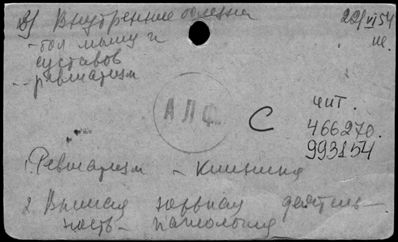 2) Внутренние болезни
22/VI 54
- бол мышц и
суставов
- ревматизм
АЛФ
С
чит.
466270.
993154
1. Ревматизм - клиника
2 Высшая нервная деятель-
ность - патология